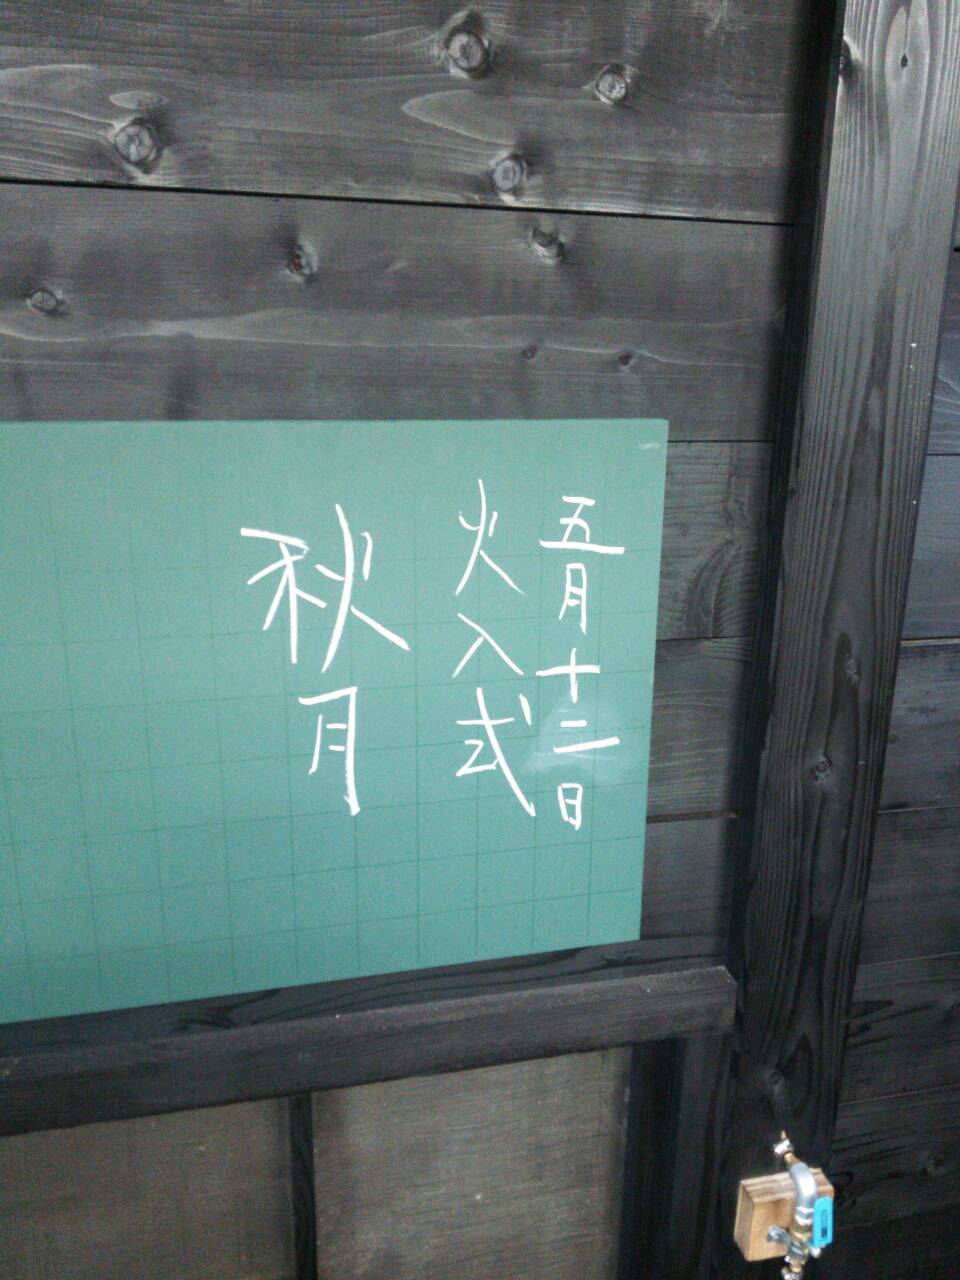 五月十二日
火入式
秋月